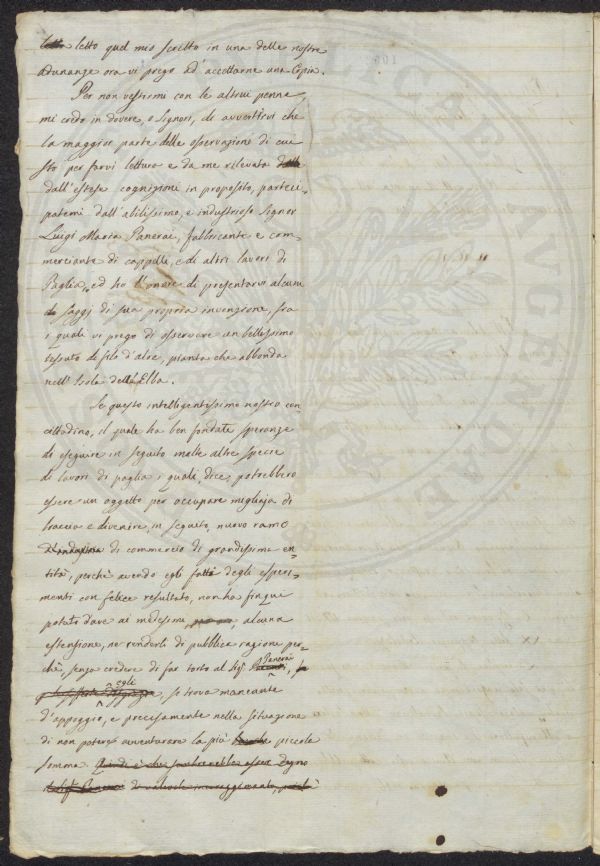 letto quel mio scritto in una delle nostre
Adunanze ora vi prego ad' accettarne una Copia.
Per non vestirmi con le altrui penne,
mi credo in dovere, o Signori, di avvertirvi che
la maggior parte delle osservazione di cui
sto per farvi lettura e da me rilevata
dall'estese cognizione in proposito, parteci-
patemi dall'abilissimo, e industrioso Signor
Luigi Maria Panerai, fabbricante e com-
merciante di cappelli, e di altri lavori di
Paglia, ed ho l'onore di presentarvi alcuni
saggj di sua propria invenzione, fra
i quali vi prego di osservare un bellissimo
tessuto di filo d'aloe, pianta che abbonda
nell'Isola dell'Elba.
Se questo intelligentissimo nostro con
cittadino, il quale ha ben fondate speranze
di eseguire in seguito molte altre specie
di lavori di paglia i quali, dice, potrebbero
essere un oggetto per occupare migliaja di
braccia e divenire, in seguito, nuovo ramo
di commercio di grandissima en-
tità, perchè avendo egli fatti degli esperi-
menti con felice resultato, non ha finqui
potuto dare ai medesimi, alcuna
estensione, ne renderli di pubblica ragione per-
chè, senza credere di far torto al Sig. Panerai,
egli, si trova mancante
d'appoggio, e precisamente nella situazione
di non potere avventurare la più piccola
somma.